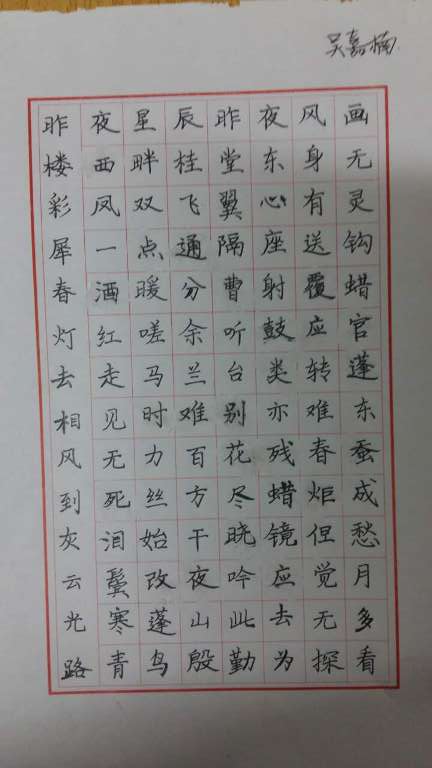 吴嘉楠
昨夜星辰昨夜风画
楼西畔桂堂东身无
彩凤双飞翼心有灵
犀一点通隔座送钩
春酒暖分曹射覆蜡
灯红嗟余听鼓应官
去走马兰台类转蓬
相见时难别亦难东
风无力百花残春蚕
到死丝方尽蜡炬成
灰泪始干晓镜但愁
云鬓改夜吟应觉月
光寒蓬山此去无多
路青鸟殷勤为探看